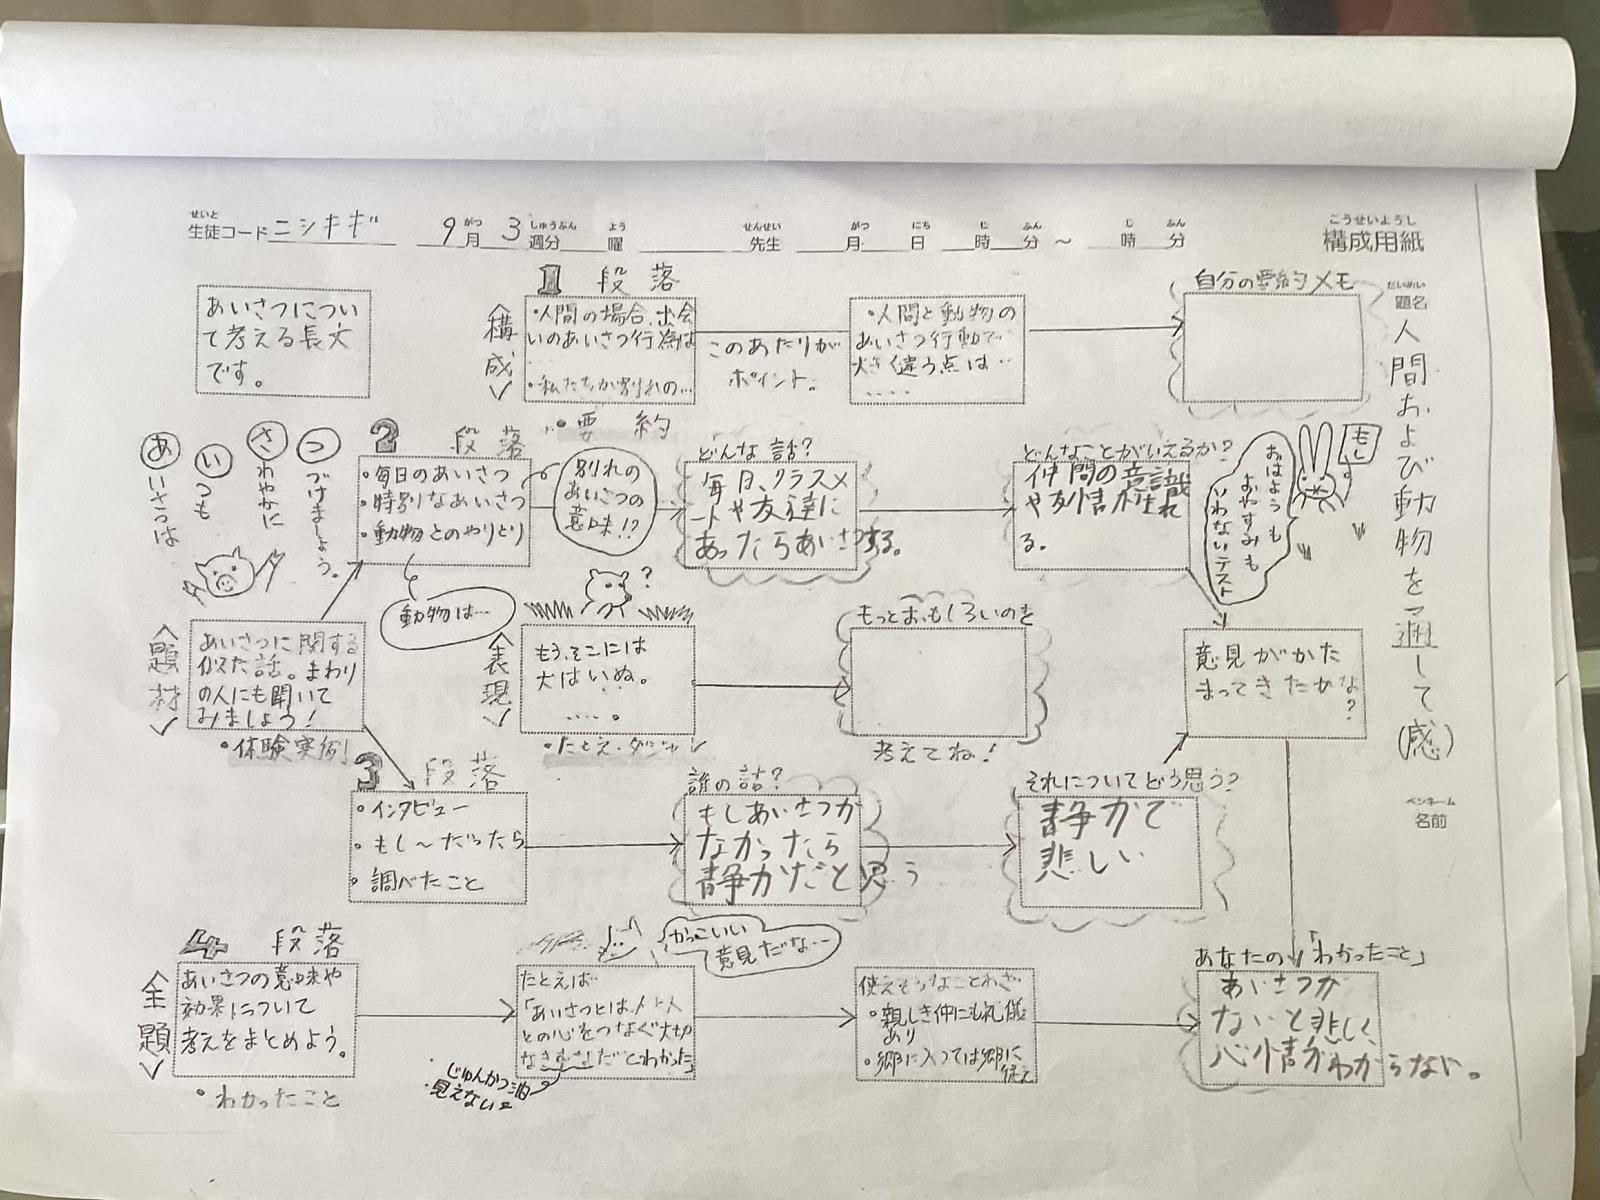 せいと
生徒コード ニシキギ 9月 3週分 曜 先生 月 日 時 分 ~ 時 分
がつ しゅうぶん よう せんせい がつ にち じ ふん じ ふん
こうせいようし
構成用紙
だいめい
題名
人間および動物を通して(感)
ペンネーム
名前
あいさつについ
て考える長文
です。
<構成>
1 段落
・人間の場合、出会
いのあいさつ行為は
・私たちが別れの…
・要約
このあたりが
ポイント。
・人間と動物の
あいさつ行動で
大きく違う点は…
....
自分の要約メモ
あいさつは
いつも
さわやかに
つづけましょう。
2 段落
・毎日のあいさつ
・特別なあいさつ
・動物とのやりとり
別れの
あいさつの
意味!?
動物は…
どんな話?
毎日、クラスメ
ートや友達に
あったらあいさつする。
どんなことがいえるか?
仲間の意識
や友情が生れ
る。
もし
おはようも
おやすみも
いわないテスト
<題材>
あいさつに関する
似た話。まわり
の人にも聞いて
みましょう!
・体験実例
<表現>
?
もう、そこには
犬はいぬ。
....。
・たとえ・ダジャレ
もっとおもしろいのを
考えてね!
意見がかた
まってきたかな?
3 段落
・インタビュー
・もし~だったら
・調べたこと
誰の話?
もしあいさつが
なかったら
静かだと思う
それについてどう思う?
静かで
悲しい
<全題>
4 段落
あいさつの意味や
効果について
考えをまとめよう。
・わかったこと
かっこいい
意見だな…
たとえば
「あいさつとは、人と人
との心をつなぐ大切
なきずなだとわかった」
じゅんかつ油
見えない
使えそうなことわざ
・親しき仲にも礼儀
あり
・郷に入っては郷に
従え
あなたの「わかったこと」
あいさつが
ないと悲しく
心情がわからない。